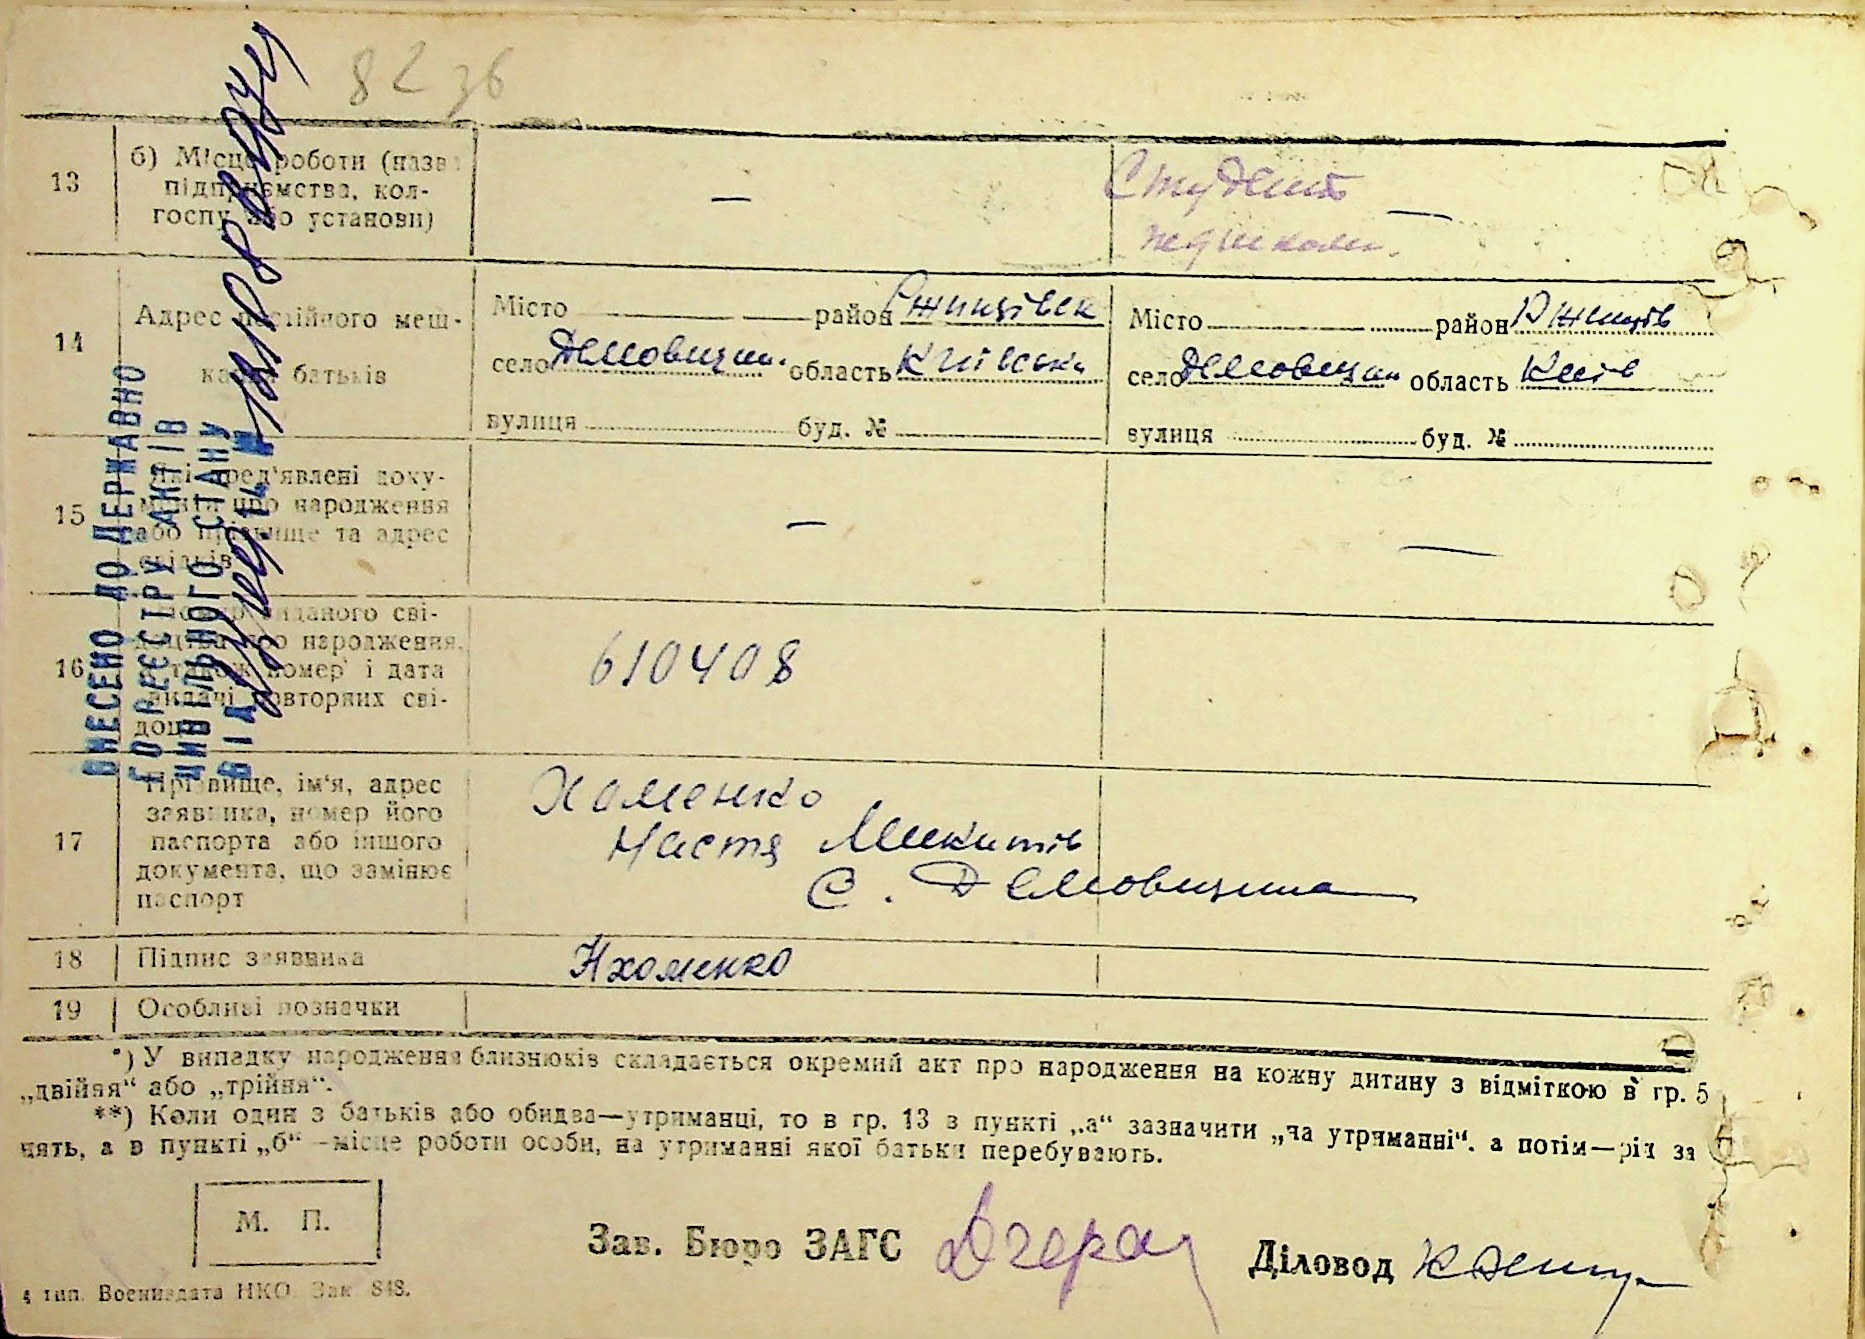 82 зв
13
б) Місце роботи (назва
підприємства, кол-
госпу або установи)
—
Студент —
педшколи.
14
Адрес постійного меш-
кання батьків
Місто район Ржищівськ
село Демовщин. область Київськ.
вулиця буд. №
Місто район Ржищів
село Демовщин область Київ
вулиця буд. №
15
Які пред'явлені доку-
менти про народження
або прізвище та адрес
свідків
—
—
16
Номер виданого сві-
доцтва про народження,
також номер і дата
видачі повторних сві-
доцтв
610408
17
Прізвище, ім'я, адрес
заявника, номер його
паспорта або іншого
документа, що замінює
паспорт
Хоменко
Настя Микитів
с. Демовщина
18
Підпис заявника
Нхоменко
19
Особливі позначки
*) У випадку народження близнюків складається окремий акт про народження на кожну дитину з відміткою в гр. 5
„двійня“ або „трійня“.
**) Коли один з батьків або обидва—утриманці, то в гр. 13 в пункті „а“ зазначити „на утриманні“, а потім—рід за
нять, а в пункті „б“ –місце роботи особи, на утриманні якої батьки перебувають.
М. П.
Зав. Бюро ЗАГС
Діловод
4 тип. Воениздата НКО. Зак. 848.
ВНЕСЕНО ДО ДЕРЖАВНО
ГО РЕЄСТРУ АКТІВ
ЦИВІЛЬНОГО СТАНУ
ВІД